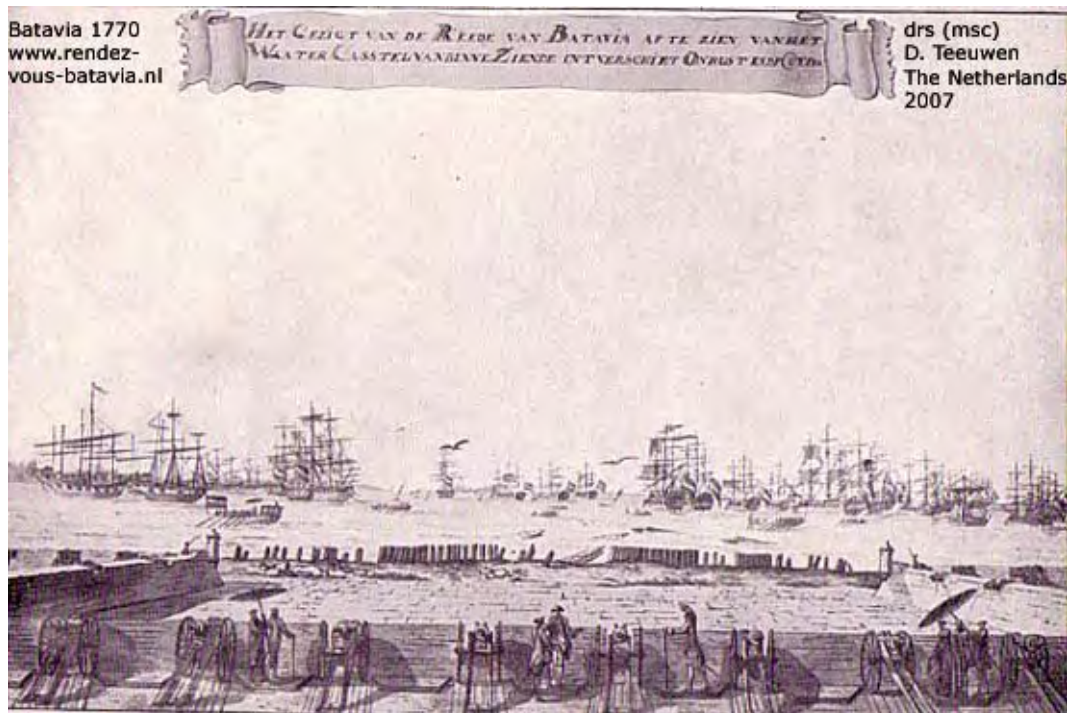 Batavia 1770
www.rendez-
vous-batavia.nl
HET GEZIGT VAN DE REEDE VAN BATAVIA AF TE ZIEN VAN HET
WAATER CASSTEL VAN BINNE ZIENDE INT VERSCHIET ONRUST
drs (msc)
D. Teeuwen
The Netherlands
2007